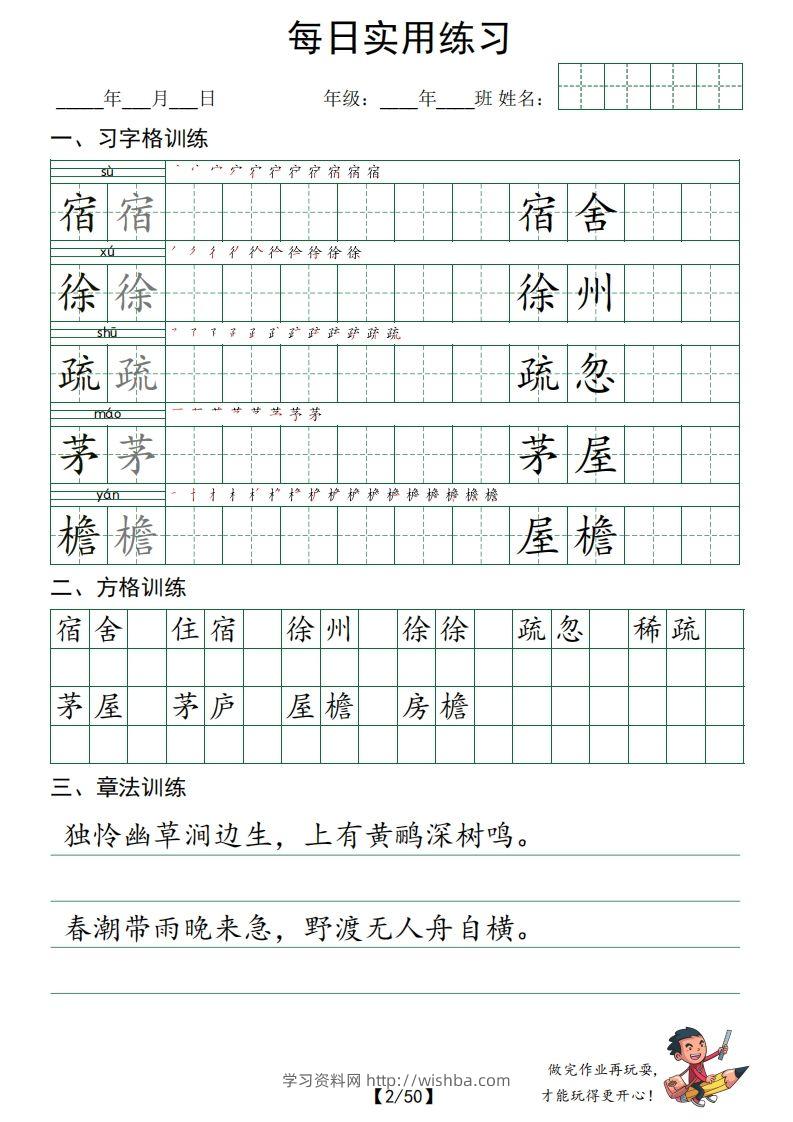 每日实用练习
_____年___月___日 年级：____年____班 姓名：
一、习字格训练
sù
宿 宿 宿 舍
xú
徐 徐 徐 州
shū
疏 疏 疏 忽
máo
茅 茅 茅 屋
yán
檐 檐 屋 檐
二、方格训练
宿舍 住宿 徐州 徐徐 疏忽 稀疏
茅屋 茅庐 屋檐 房檐
三、章法训练
独怜幽草涧边生，上有黄鹂深树鸣。
春潮带雨晚来急，野渡无人舟自横。
做完作业再玩耍，
才能玩得更开心！
学习资料网 http://wishba.com
【2/50】